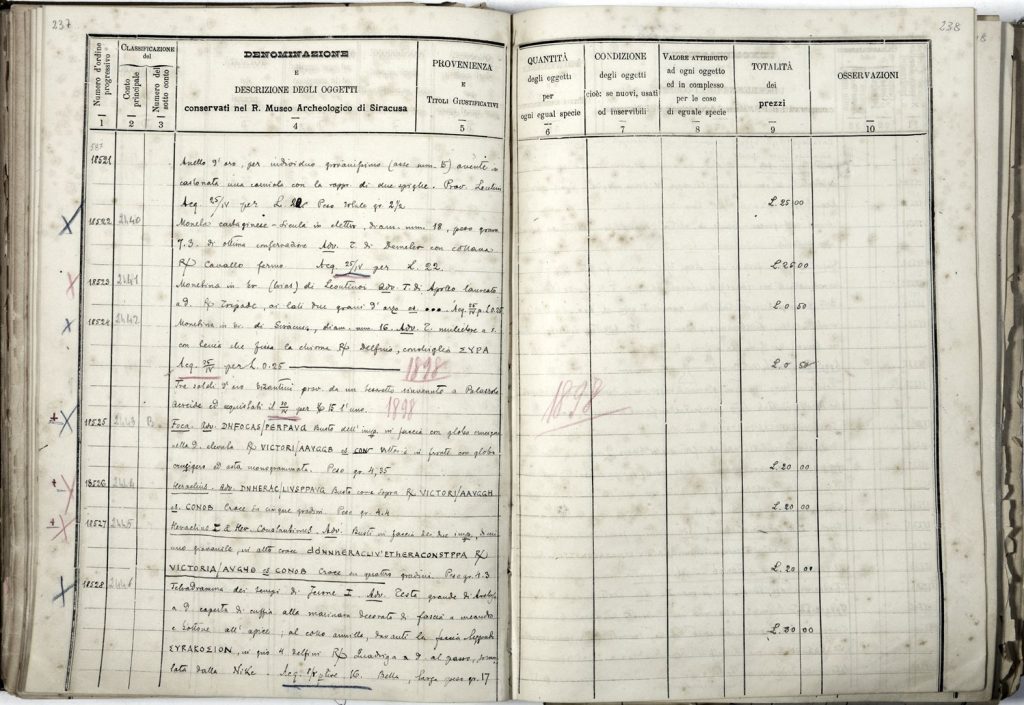 237
Numero d'ordine progressivo
CLASSIFICAZIONE del
Conto principale
Numero del sotto conto
DENOMINAZIONE
E
DESCRIZIONE DEGLI OGGETTI
conservati nel R. Museo Archeologico di Siracusa
PROVENIENZA
E
TITOLI GIUSTIFICATIVI
1 2 3 4 5
18521 Anello d'oro, per individuo giovanissimo (asse mm. 5) avente
una con la rappr. di due spighe. Prov. Leontini
Acq. 25/IV per L. Peso gr. 2½
18522 2440 Moneta cartaginese-sicula in elettro, diam. mm. 18, peso grammi
7.3. di ottima conservazione Adv. T. di Demeter con collana
R/ Cavallo fermo Acq. 25/IV per L. 22.
18523 2441 Monetina in br (trias) di Leontinoi Adv T. di Apollo laureato
a d. R/ Tripode, ai lati due grani d'orzo es. ••• Acq. 25/IV p. L. 0.25
18524 2442 Monetina in br. di Siracusa, diam. mm. 16. Adv. T. muliebre a s.
con che la chioma R/ Delfino, conchiglia ΣΥΡΑ
Acq. 25/IV per L. 0.25 1898
Tre soldi d'oro bizantini prov. da un tesoretto rinvenuto a Palazzolo
Acreide ed acquistati il /IV per 15 l'uno. 1898
18525 2443 B. Foca. Adv. DNFOCAS/PERPAVG Busto dell'imp. in faccia con globo
nella d. elevata R/ VICTORI/AAVGGB es. CON Vittoria in fronte con globo
crucigero ed asta monogrammata. Peso gr. 4,35
18526 2444 Heraclius. Adv. DNHERAC/LIVSPPAVG Busto come sopra R/ VICTORI/AAVGGH
es. CONOB Croce su cinque gradini. Peso gr. 4.4
18527 2445 Heraclius I & Her. Constantinus. Adv. Busti in faccia dei due imp., di cui
uno giovanile, in alto croce ddNNHERACLIV'ETHERACONSTPPA R/
VICTORIA/AVGHΘ es. CONOB Croce su quattro gradini. Peso gr. 4.3
18528 2446 Tetradramma dei tempi di Jerone I. Adv. Testa grande di
a d. coperta di cuffia alla marinara decorata di fascia a meandro
e bottone all'apice; al collo armilla, davanti la faccia leggenda
ΣΥΡΑΚΟΣΙΟΝ, in giro 4 delfini R/ Quadriga a d. al passo,
dalla Nike. Acq. 16. Bella, largo peso gr. 17
238
QUANTITÀ
degli oggetti
per
ogni egual specie
CONDIZIONE
degli oggetti
cioè: se nuovi, usati
od inservibili
VALORE ATTRIBUITO
ad ogni oggetto
ed in complesso
per le cose
di eguale specie
TOTALITÀ
dei
prezzi
OSSERVAZIONI
6 7 8 9 10
L. 25 00
L. 26 00
L. 0 50
L. 0 50
1898
L. 20 00
L. 20 00
L. 20 00
L. 30 00